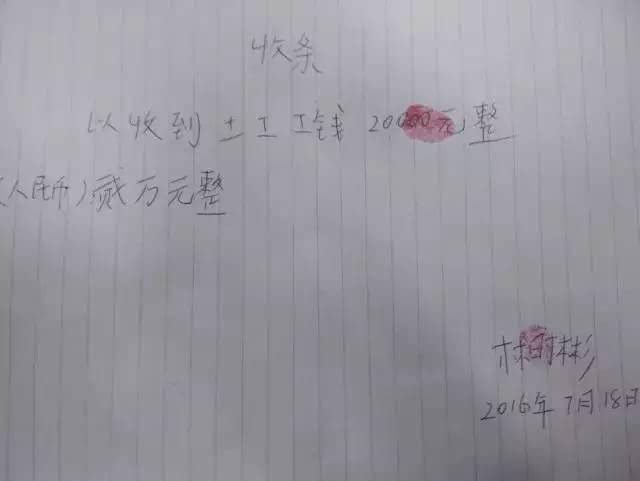 收条
以收到土工工钱 20000元整
(人民币)贰万元整
林彬
2016年7月18日